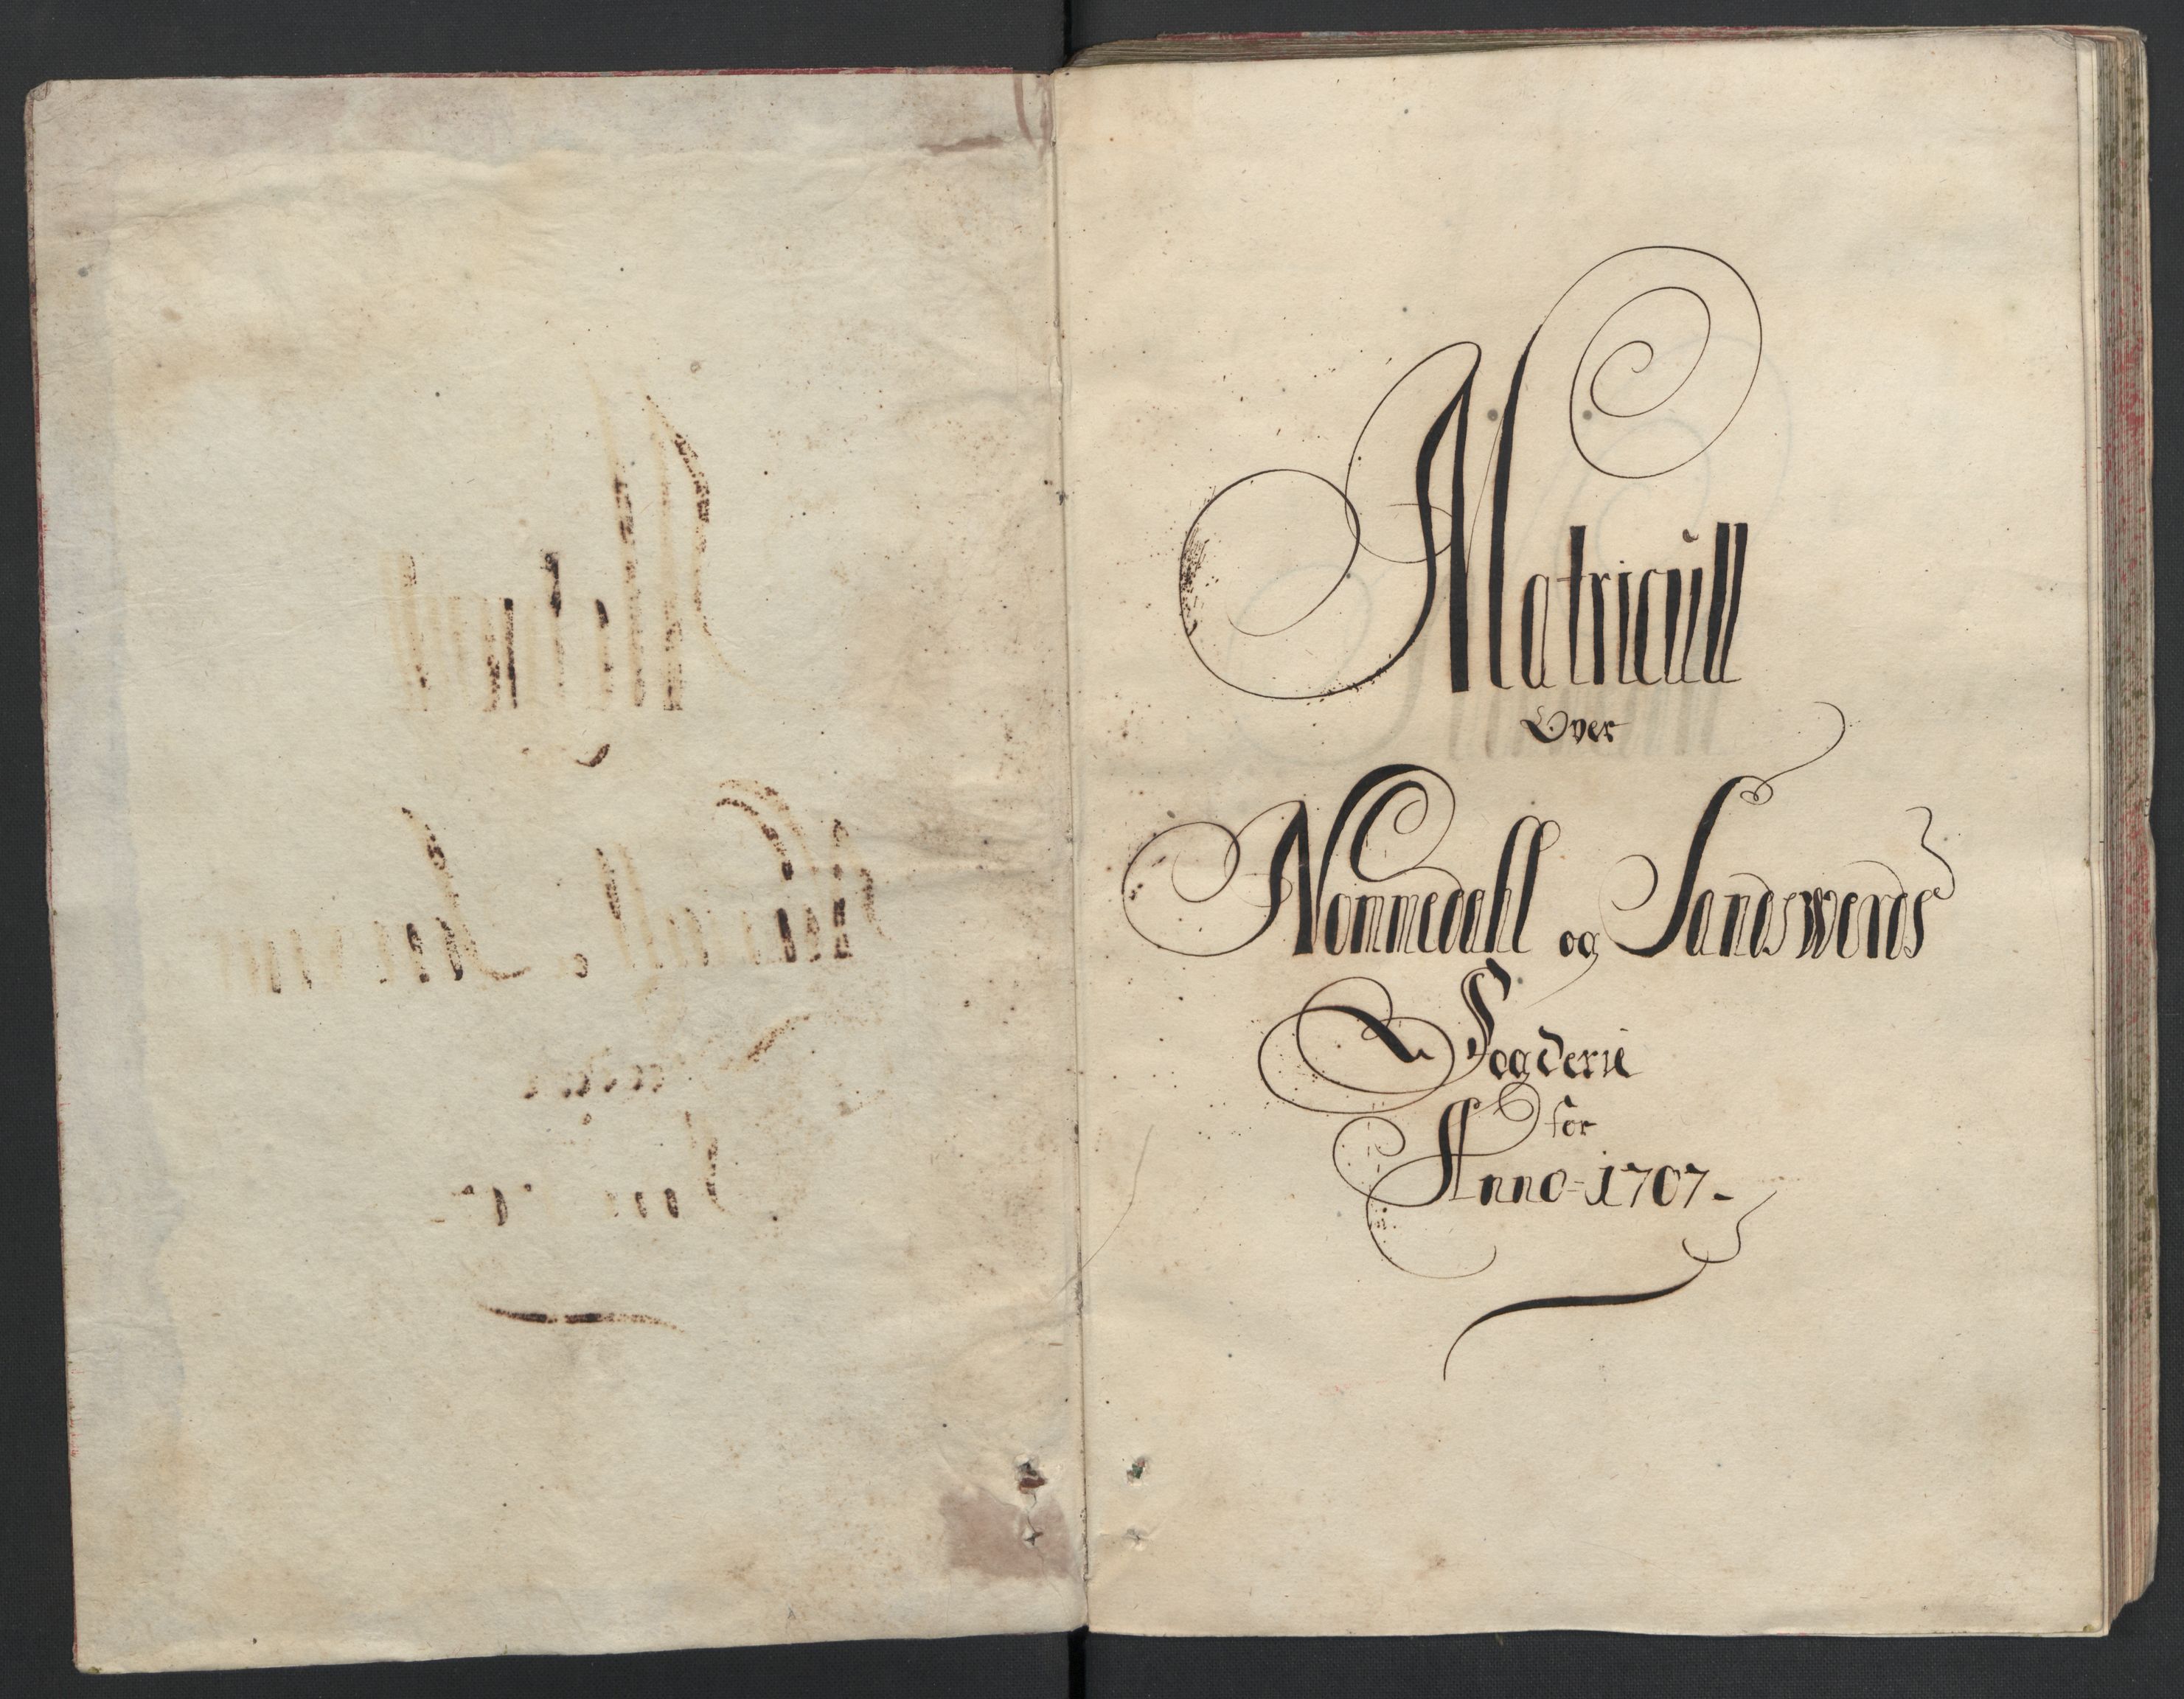 Matricull
Over
Nommedahl og Sandswerds
Fogderie
for
Anno=1707-